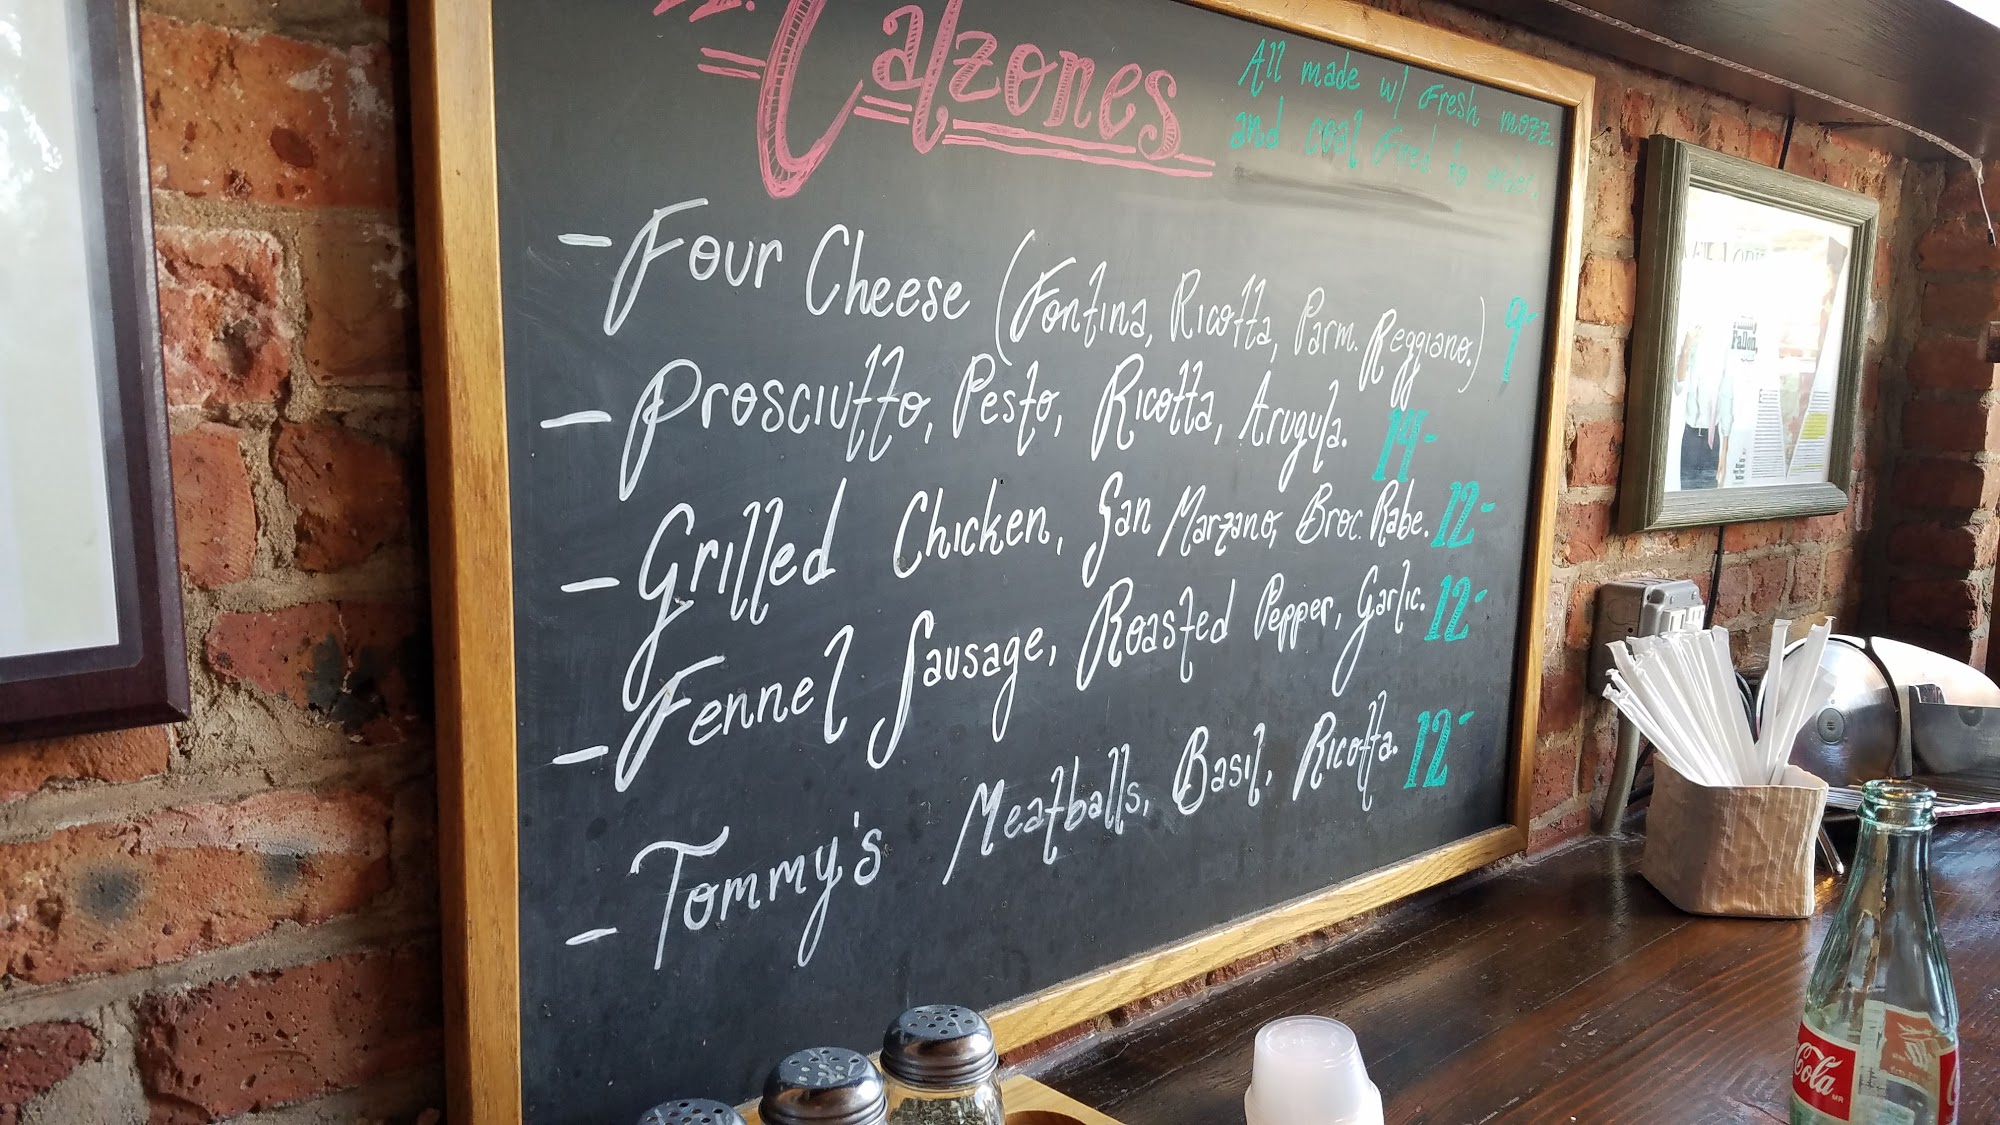 Calzones
All made w/ Fresh mozz.
and coal fired to order.
- Four Cheese (Fontina, Ricotta, Parm. Reggiano.) 9-
- Prosciutto, Pesto, Ricotta, Arugula. 14-
- Grilled Chicken, San Marzano, Broc. Rabe. 12-
- Fennel Sausage, Roasted Pepper, Garlic. 12-
- Tommy's Meatballs, Basil, Ricotta. 12-
Fallon,
Cola